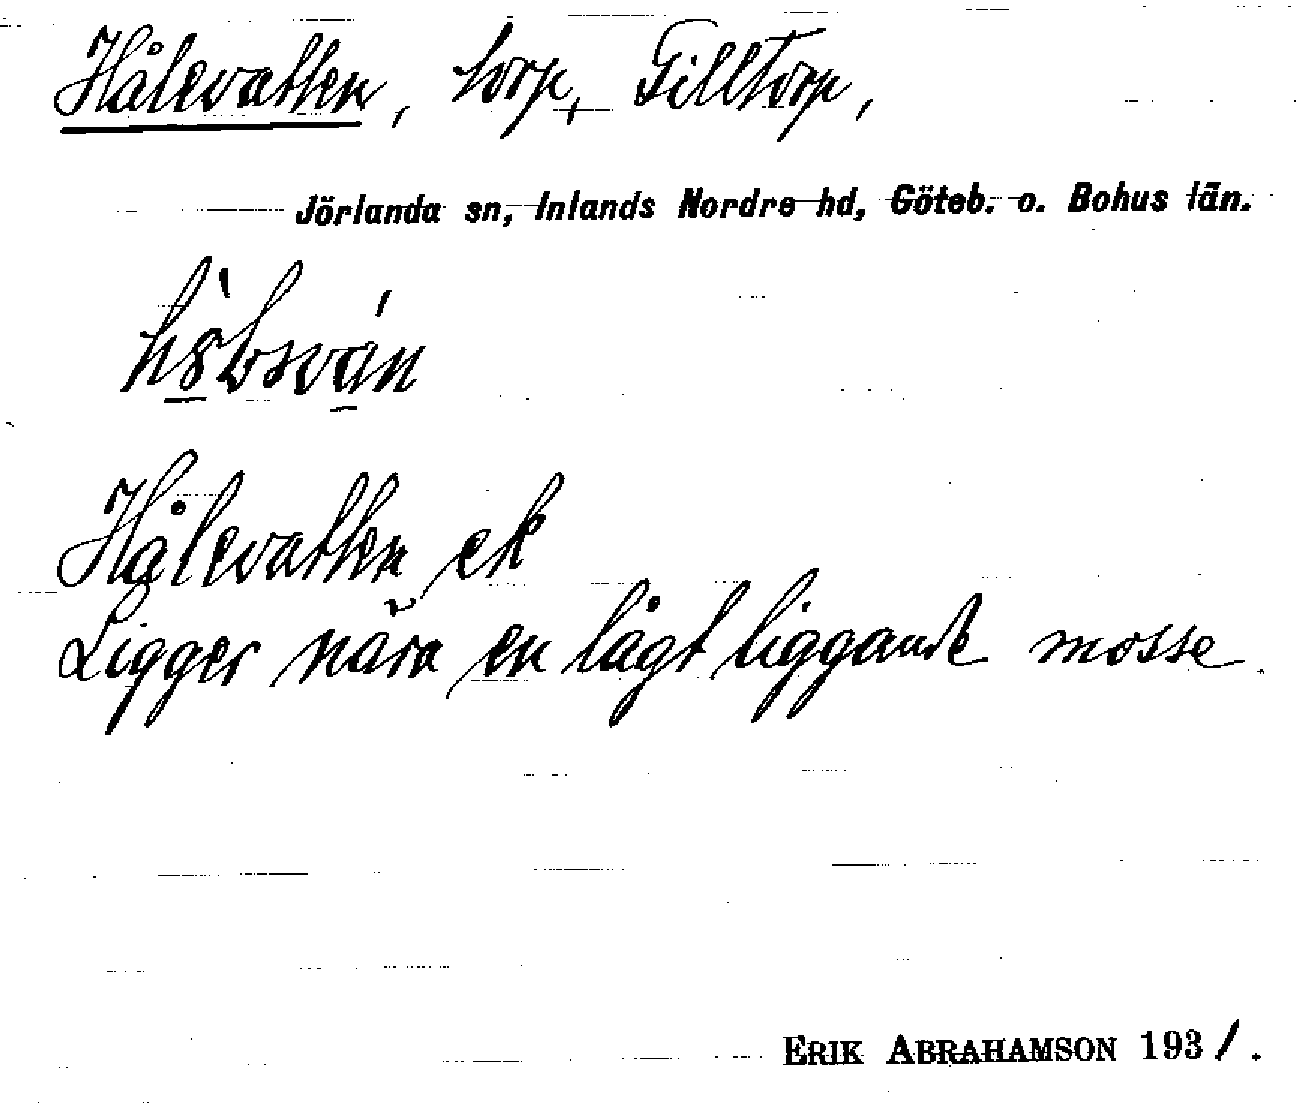 Hålevatten, torp, Tilltorp,
Jörlanda sn, Inlands Nordre hd, Göteb. o. Bohus län.
Hålevatten ek
Ligger nära en lågt liggande mosse.
ERIK ABRAHAMSON 1931.